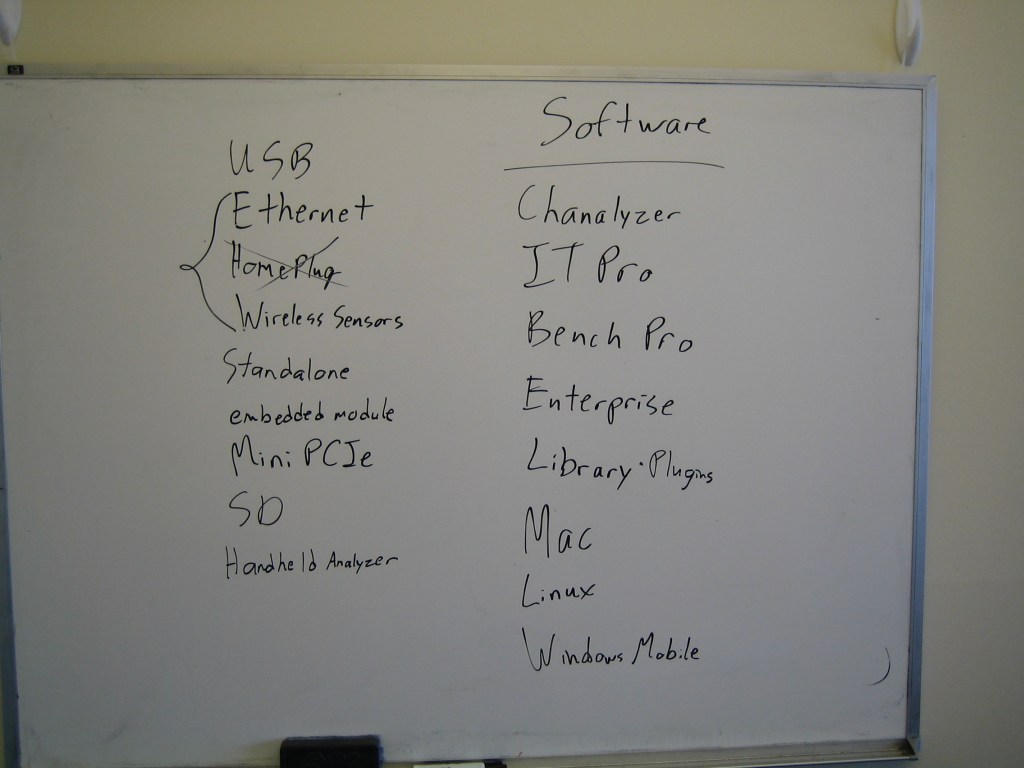 USB
Ethernet
HomePlug
Wireless Sensors
Standalone
embedded module
Mini PCIe
SD
Handheld Analyzer
Software
Chanalyzer
IT Pro
Bench Pro
Enterprise
Library · Plugins
Mac
Linux
Windows Mobile